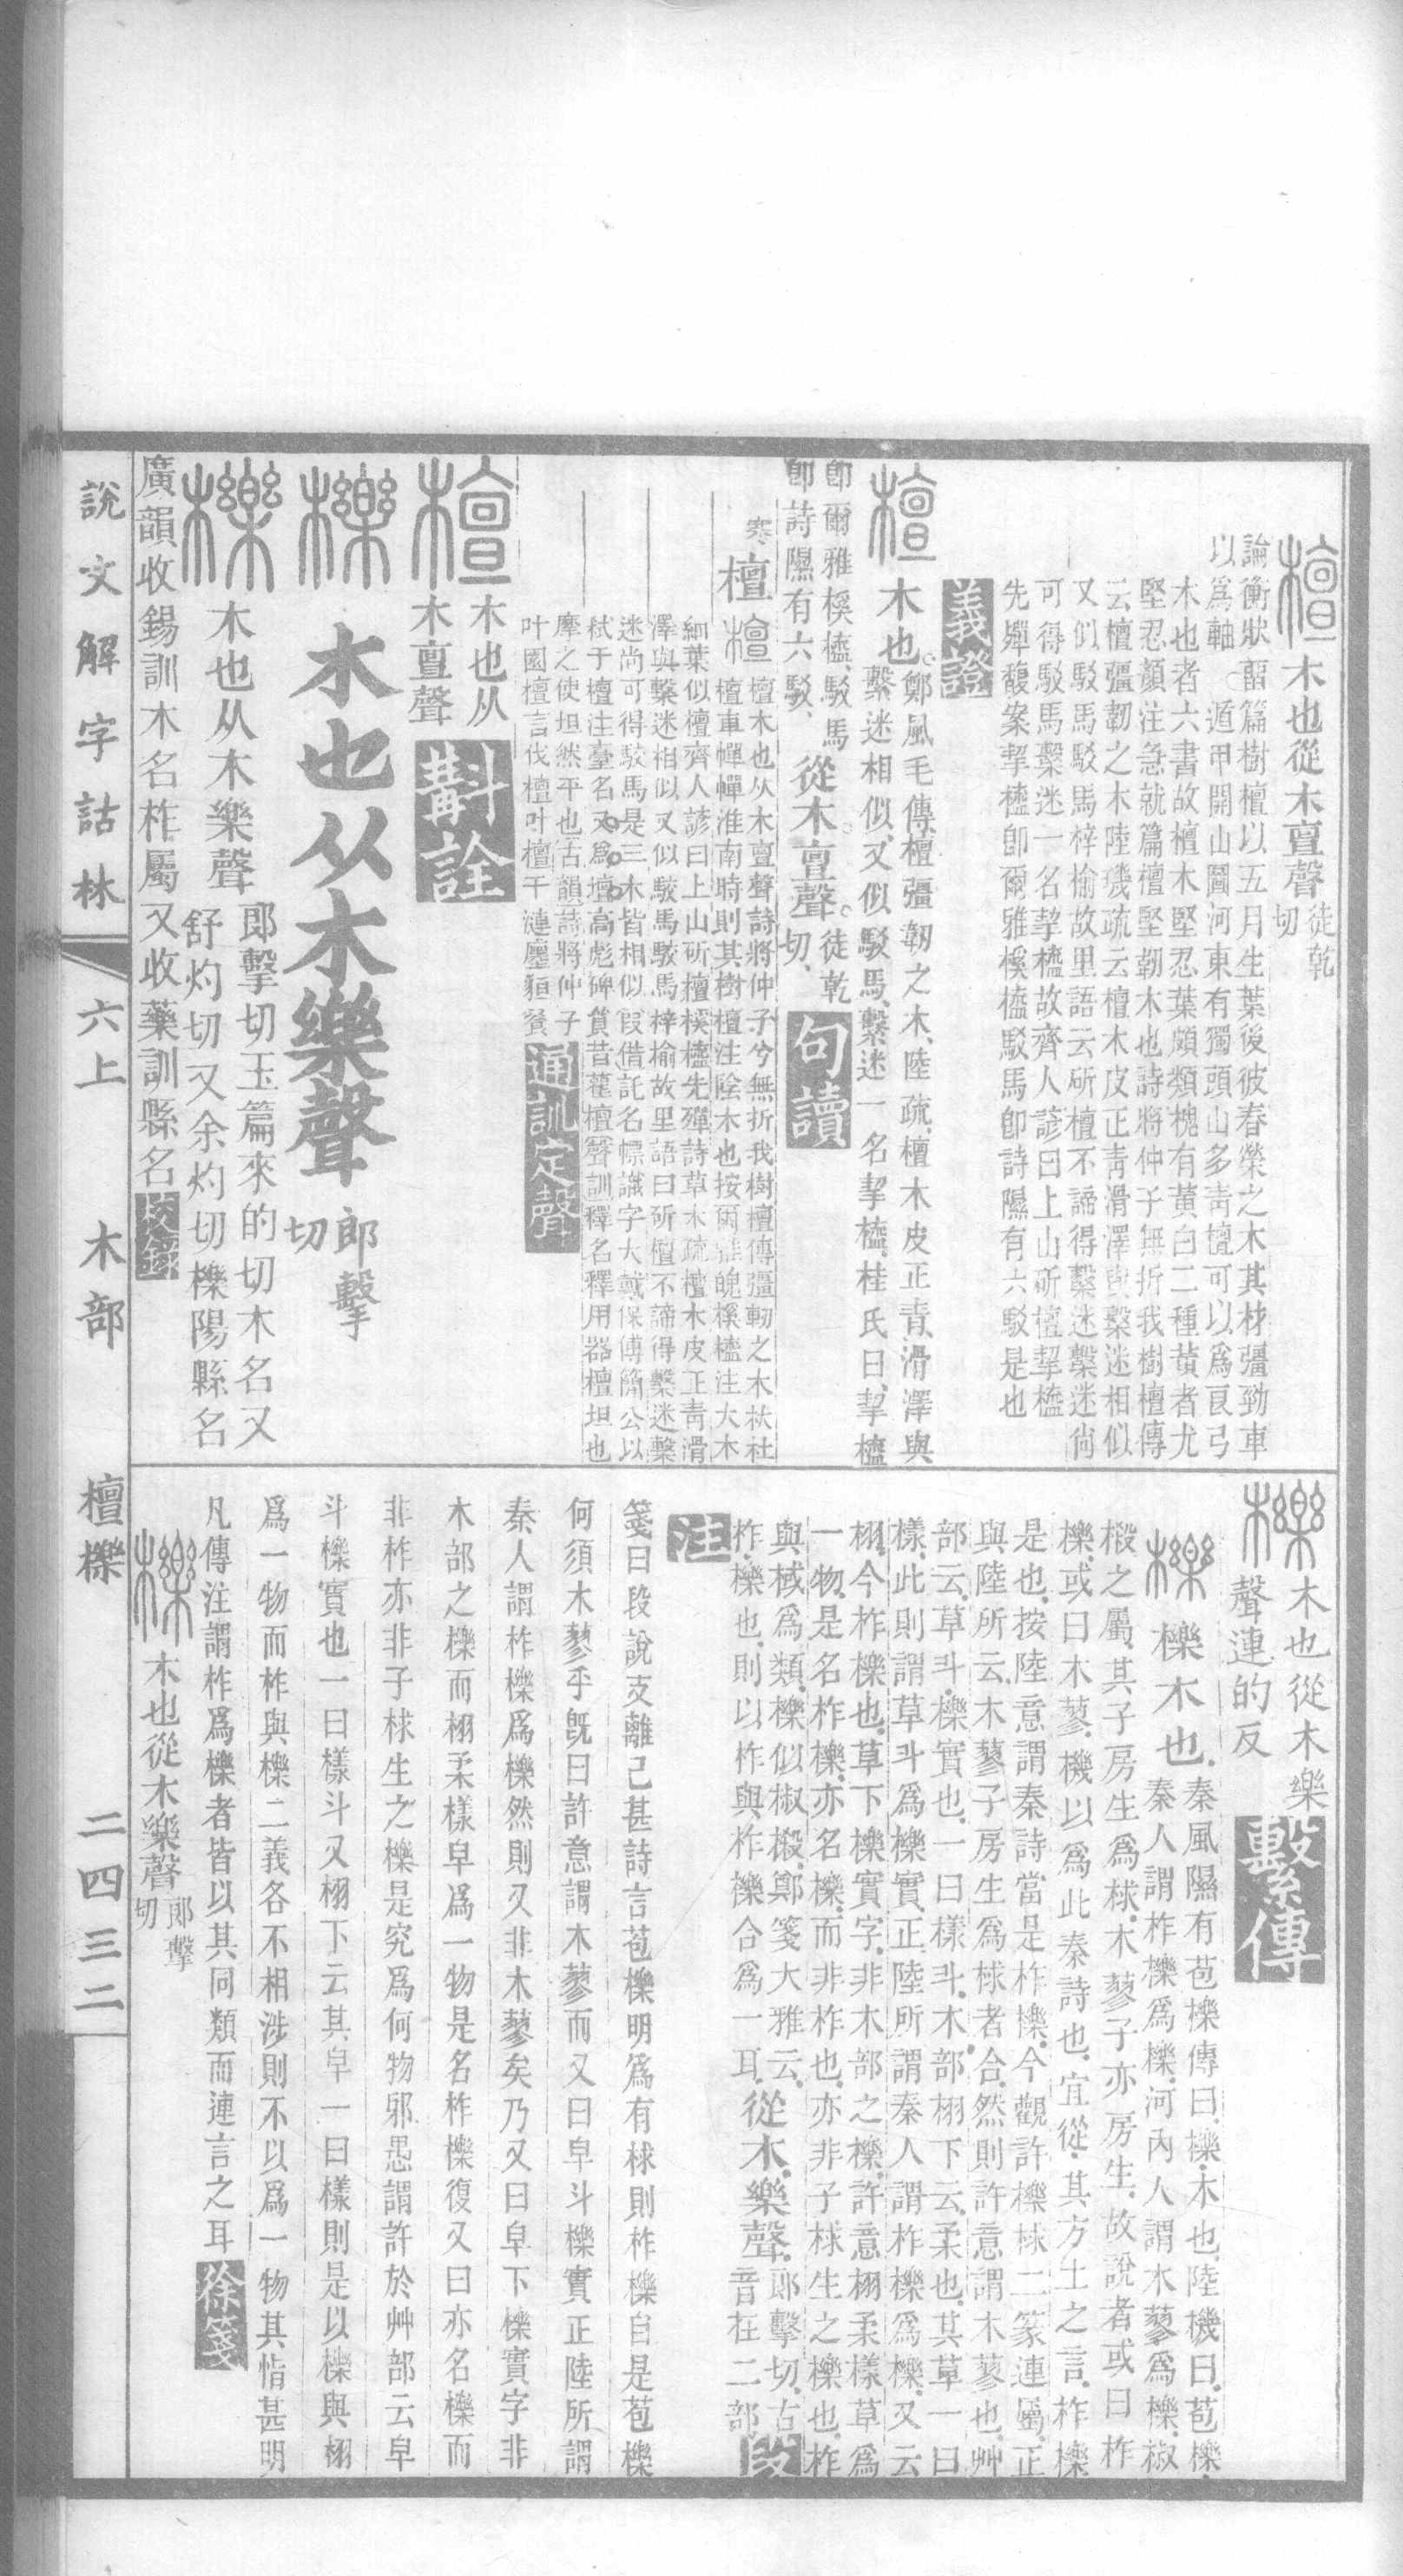 檀 木也從木亶聲徒乾切
論衡狀畱篇樹檀以五月生葉後彼春榮之木其材彊勁車
以爲軸○遁甲開山圖河東有獨頭山多靑檀可以爲㫐弓
木也者六書故檀木堅忍葉頗類槐有黃白二種黃者尤
堅忍顏注急就篇檀堅韌木也詩將仲子無折我樹檀傳
云檀彊韌之木陸璣疏云檀木皮正靑滑澤與檕迷相似
又似駁馬駁馬梓榆故里語云斫檀不諦得檕迷檕迷尙
可得駁馬檕迷一名挈橀故齊人諺曰上山斫檀挈橀
先殫馥案挈橀卽爾雅榽橀駁馬卽詩隰有六駁是也
義證
檀 木也。鄭風毛傳、檀、彊韌之木、陸疏、檀木皮正靑、滑澤與
檕迷相似、又似駁馬、檕迷一名挈橀、桂氏曰、挈橀
卽爾雅榽橀、駁馬
卽詩隰有六駁、從木亶聲。徒乾切、句讀
寒檀 檀、檀木也从木亶聲詩將仲子兮無折我樹檀傳彊韌之木杕杜
檀車幝幝淮南時則其樹檀注陰木也按爾雅魄榽橀注大木
細葉似檀齊人諺曰上山斫檀榽橀先殫詩草木疏檀木皮正靑滑
澤與檕迷相似又似駁馬駁馬梓榆故里語曰斫檀不諦得檕迷檕
迷尚可得駁馬是三木皆相似假借託名幖識字大戴保傅簡公以
弒于檀注臺名又爲壇高彪碑貫昔蘿檀聲訓釋名釋用器檀坦也
摩之使坦然平也古韻詩將仲子
叶園檀言伐檀叶檀干漣廛貆餐 通訓定聲
檀 木也从
木亶聲 斠詮
櫟 木也从木樂聲 郎擊切
櫟 木也从木樂聲 郎擊切玉篇來的切木名又
舒灼切又余灼切櫟陽縣名
廣韻收錫訓木名柞屬又收藥訓縣名 校錄
說文解字詁林 六上 木部 檀櫟 二四三二
櫟 木也從木樂
聲連的反 繫傳
櫟 櫟木也、秦風隰有苞櫟傳曰、櫟、木也、陸機曰、苞櫟、
秦人謂柞櫟爲櫟、河內人謂木蓼爲櫟、椒
樧之屬、其子房生爲梂、木蓼子亦房生、故說者或曰柞
櫟、或曰木蓼、機以爲此秦詩也、宜從其方土之言、柞櫟
是也、按陸意謂秦詩當是柞櫟、今觀許櫟梂二篆連屬、正
與陸所云木蓼子房生爲梂者合、然則許意謂木蓼也、艸
部云、草斗、櫟實也、一曰樣斗、木部栩下云、柔也、其草一曰
樣、此則謂草斗爲櫟實、正陸所謂秦人謂柞櫟爲櫟、又云
栩、今柞櫟也、草下櫟實字、非木部之櫟、許意栩柔樣草爲
一物、是名柞櫟、亦名櫟、而非柞也、亦非子梂生之櫟也、柞
與棫爲類、櫟似椒樧、鄭箋大雅云、
柞、櫟也、則以柞與柞櫟合爲一耳、從木、樂聲、郎擊切、古音在二部、段
注
箋曰段說支離已甚詩言苞櫟明爲有梂則柞櫟自是苞櫟
何須木蓼乎旣曰許意謂木蓼而又曰皁斗櫟實正陸所謂
秦人謂柞櫟爲櫟然則又非木蓼矣乃又曰皁下櫟實字非
木部之櫟而栩柔樣皁爲一物是名柞櫟復又曰亦名櫟而
非柞亦非子梂生之櫟是究爲何物邪愚謂許於艸部云皁
斗櫟實也一曰樣斗又栩下云其皁一曰樣則是以櫟與栩
爲一物而柞與櫟二義各不相涉則不以爲一物其恉甚明
凡傳注謂柞爲櫟者皆以其同類而連言之耳 徐箋
櫟 木也從木樂聲郎擊切